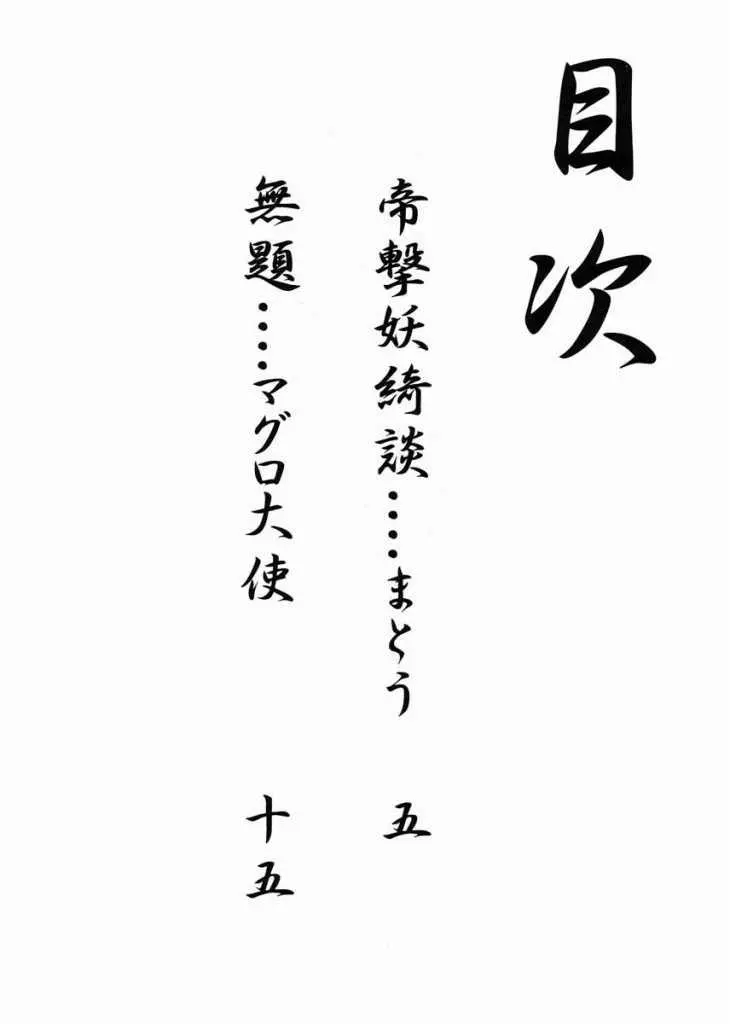 目次
帝撃妖綺談・・・・まとう 五
無題・・・・マグロ大使 十五